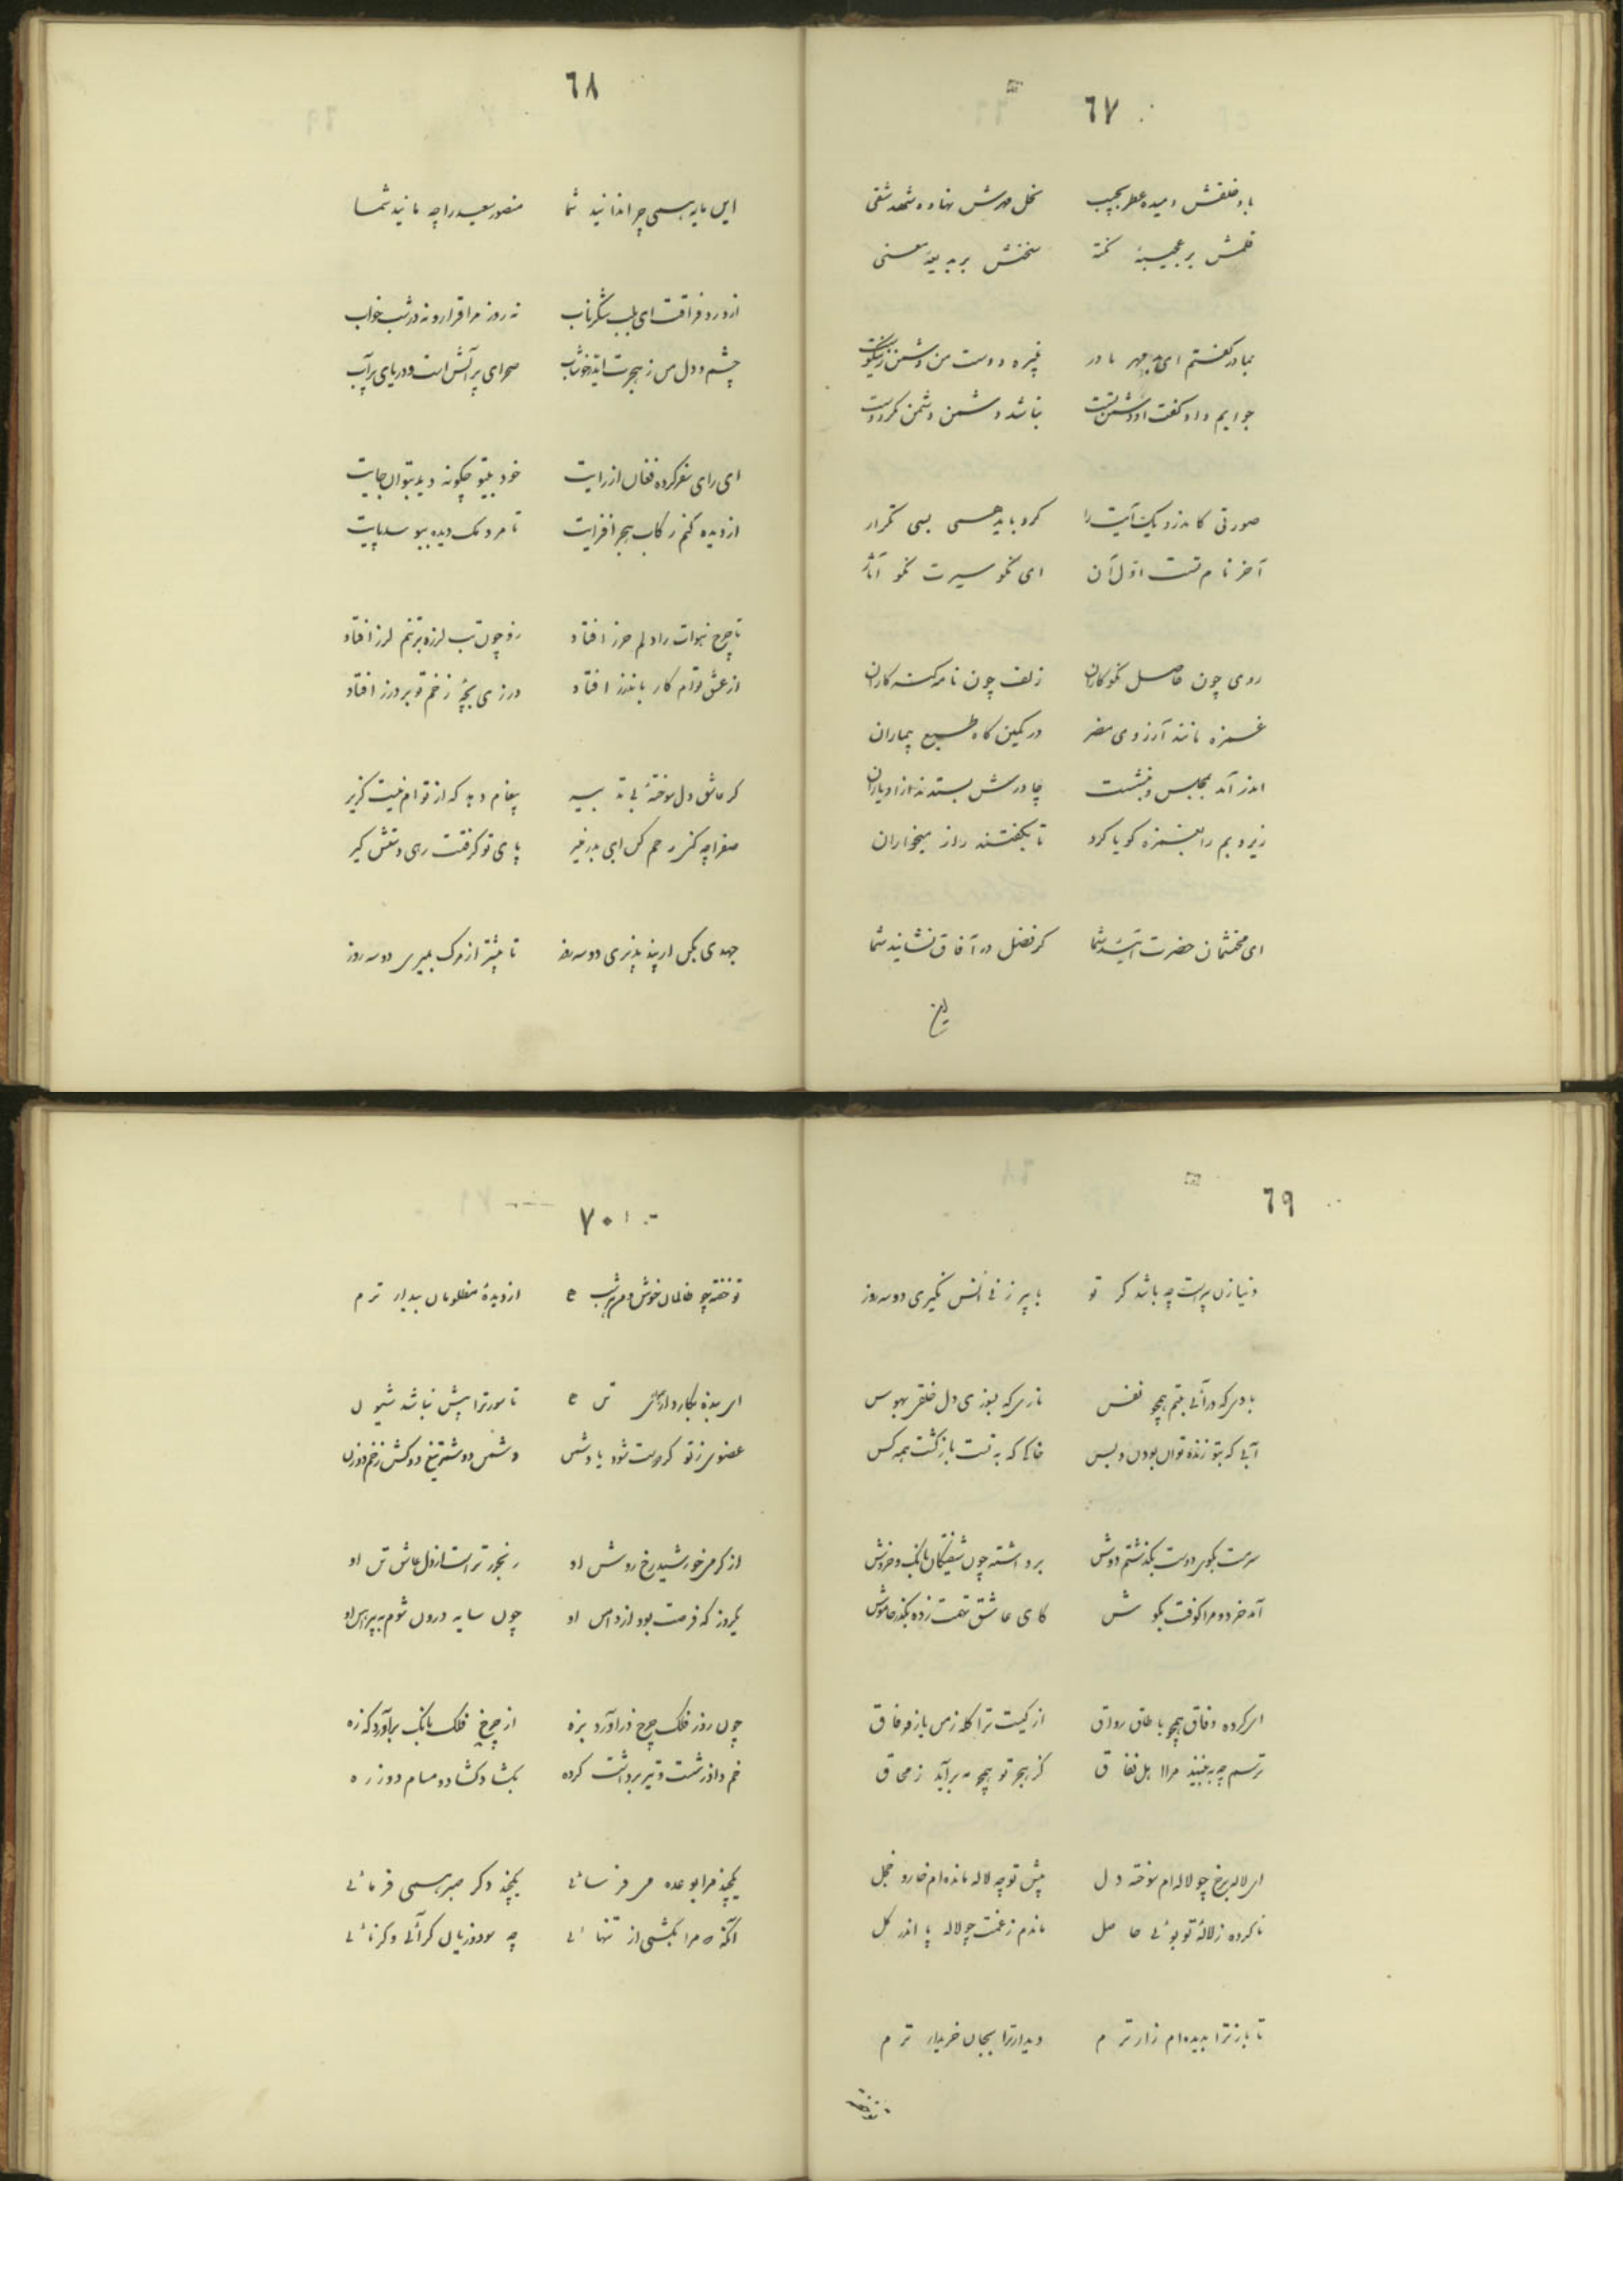 ٦٧
باد خلقش دمیده عطر بجیب نخل مهرش نهاده شهد شفی
قلمش بر عجیبهٔ نکته سخنش بر بدیعهٔ معنی
بمادر گفتم ای بدمهر مادر دوست من دشمن
جوابم داد گفت او دشمن تست نباشد دشمن دشمن مگر دوست
صورتی کاندرو یک آیت را کرد باید همی بسی تکرار
آخر نام تست اول آن ای نکو سیرت نکو آثار
روی چون حاصل نکوکاران زلف چون نامه گنه کاران
غمزه مانند آرزوی مضر در کمین گاه طبع بیماران
اندر آمد بمجلس و بنشست چادرش بستدند ازو یاران
زیر و بم را بغمزه گویا کرد تا بگفتند راز میخواران
ای محتشمان حضرت شما کر فضل در آفاق نشانید شما
این
٦٨
این مایه همی چرا ندانید شما منصور سعید را چه مانید شما
از درد فراقت ای بلب شکر ناب نه روز مرا قرار و نه در شب خواب
چشم و دل من ز هجرت صحرای پر آتش است و دریای پر آب
ای رای سفر کرده فغان از رایت خود بیتو چگونه دید بتوان جایت
از دیده کنم رکاب هجر افزایت تا مردمک دیده ببوسد پایت
تا چرخ را دلم حرز افتاد زو چون تب لرزه بر تنم لرز افتاد
از عشق توام کار باندرز افتاد درزی بچهٔ زخم تو بر درز افتاد
کر عاشق دل سوختهٔ بی تدبیر پیغام دهد که از توام نیست گزیر
صفرا چه کنی رحم کن ای بدر منیر پای تو گرفتست رهی دستش گیر
جهدی بکن ار پند پذیری دو سه روز تا پیشتر از مرگ بمیری دو سه روز
٦٩
دنیا زن پیریست چه باشد گر تو با پیر زنی انس نگیری دو سه روز
بادی که درآئی بتنم همچو نفس ناری که بسوزی دل خلقی بهوس
آبی که بتو زنده توان بودن و بس خاکی که به تست بازگشت همه کس
سرمست بکوی دوست بگذشتم دوش برداشته چون شیفتگان بانگ و خروش
آمد خرد و مرا کوفت بگوش کای عاشق تهمت زده بگذر خاموش
ای کرده وفاق همچو با طاق رواق از کیست ترا گله ز من باز وفاق
ترسم چه به بینند مرا اهل نفاق کز هجر تو همچو مه برآید ز محاق
ای لاله رخ چو لاله ام سوخته دل پیش تو چه لاله مانده ام خار و خجل
ناکرده ز لالهٔ تو بوئی حاصل ماندم ز غمت چو لاله پا اندر گل
تا باز ترا بدیده ام زارترم دیدار ترا بجان خریدارترم
تو خفته
٧٠
تو خفته چو ظالمان خوش از دیدهٔ مظلومان بیدارترم
ای بیکار تن تا سود ترا پیش نباشد شیون
عضوی ز تو گر دوست شود با دشمن دشمن دو شمر تیغ دو کش زخم دو زن
از گرمی خورشید رخ روشن او رنجورتر است از دل عاشق تن او
یکروز که فرصت بود از دامن او چون سایه درون شوم به پیراهن او
چون روز فلک چرخ درآورد بزه از چرخ فلک بانگ برآورد که زه
خم داد و تیر برداشت گره بگشاد و گشاد و مسام دو زره
یکچند مرا بوعده می فرسائی یکچند دگر صبر همی فرمائی
آنگه که مرا بکشتی از تنهائی چه سود و زیان گر آئی و گر نائی